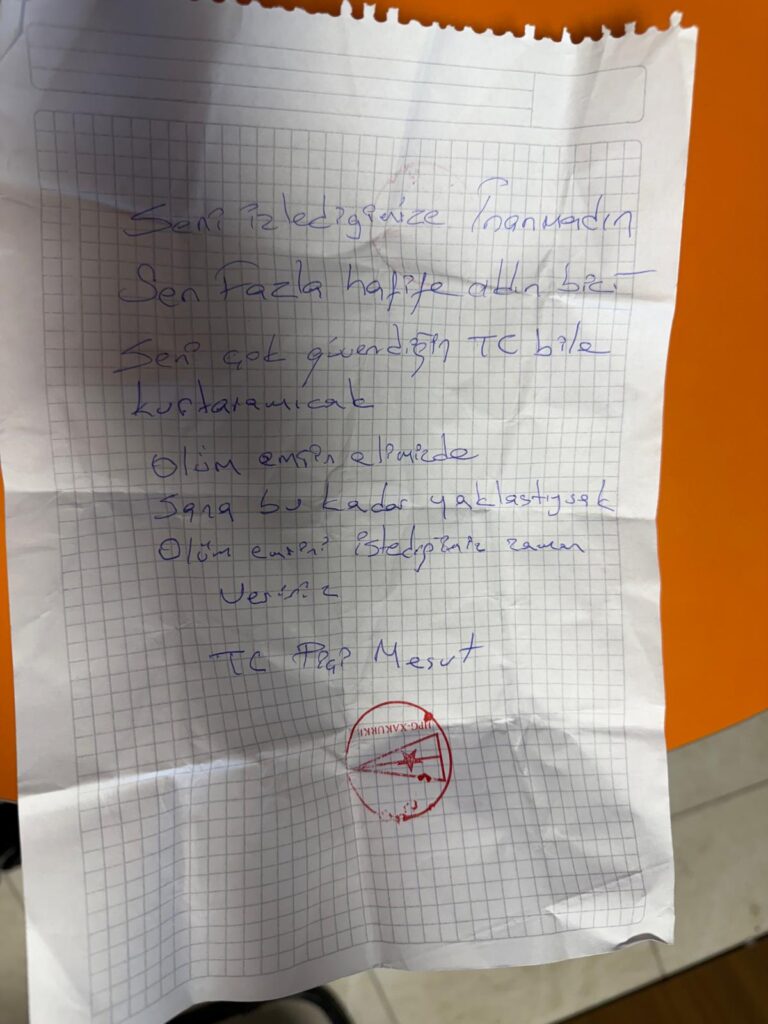 Seni izledigimize İnanmadın
Sen Fazla hafife aldın bizi
Seni çok güvendiğin TC bile
kurtaramıcak
Ölüm emrin elimizde
Sana bu kadar yaklastıysak
Ölüm emrini istedigimiz zaman
veririz
TC Piçi Mesut
HPG-XAKURKÊ